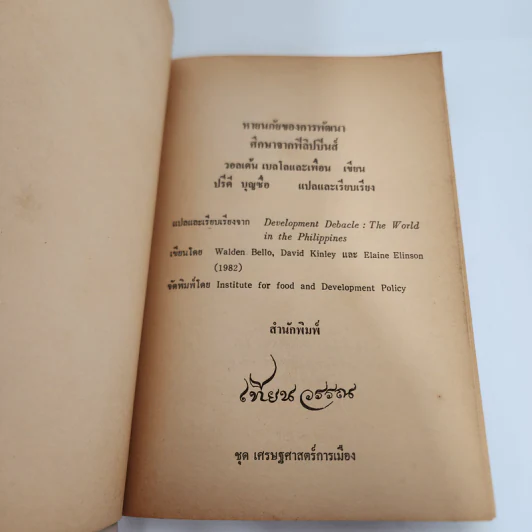 หายนภัยของการพัฒนา
ศึกษาจากฟิลิปปินส์
วอลเด้น เบลโลและเพื่อน เขียน
ปรีดี บุญซื่อ แปลและเรียบเรียง
แปลและเรียบเรียงจาก Development Debacle : The World
in the Philippines
เขียนโดย Walden Bello, David Kinley และ Elaine Elinson
(1982)
จัดพิมพ์โดย Institute for food and Development Policy
สำนักพิมพ์
เทียนวรรณ
ชุด เศรษฐศาสตร์การเมือง